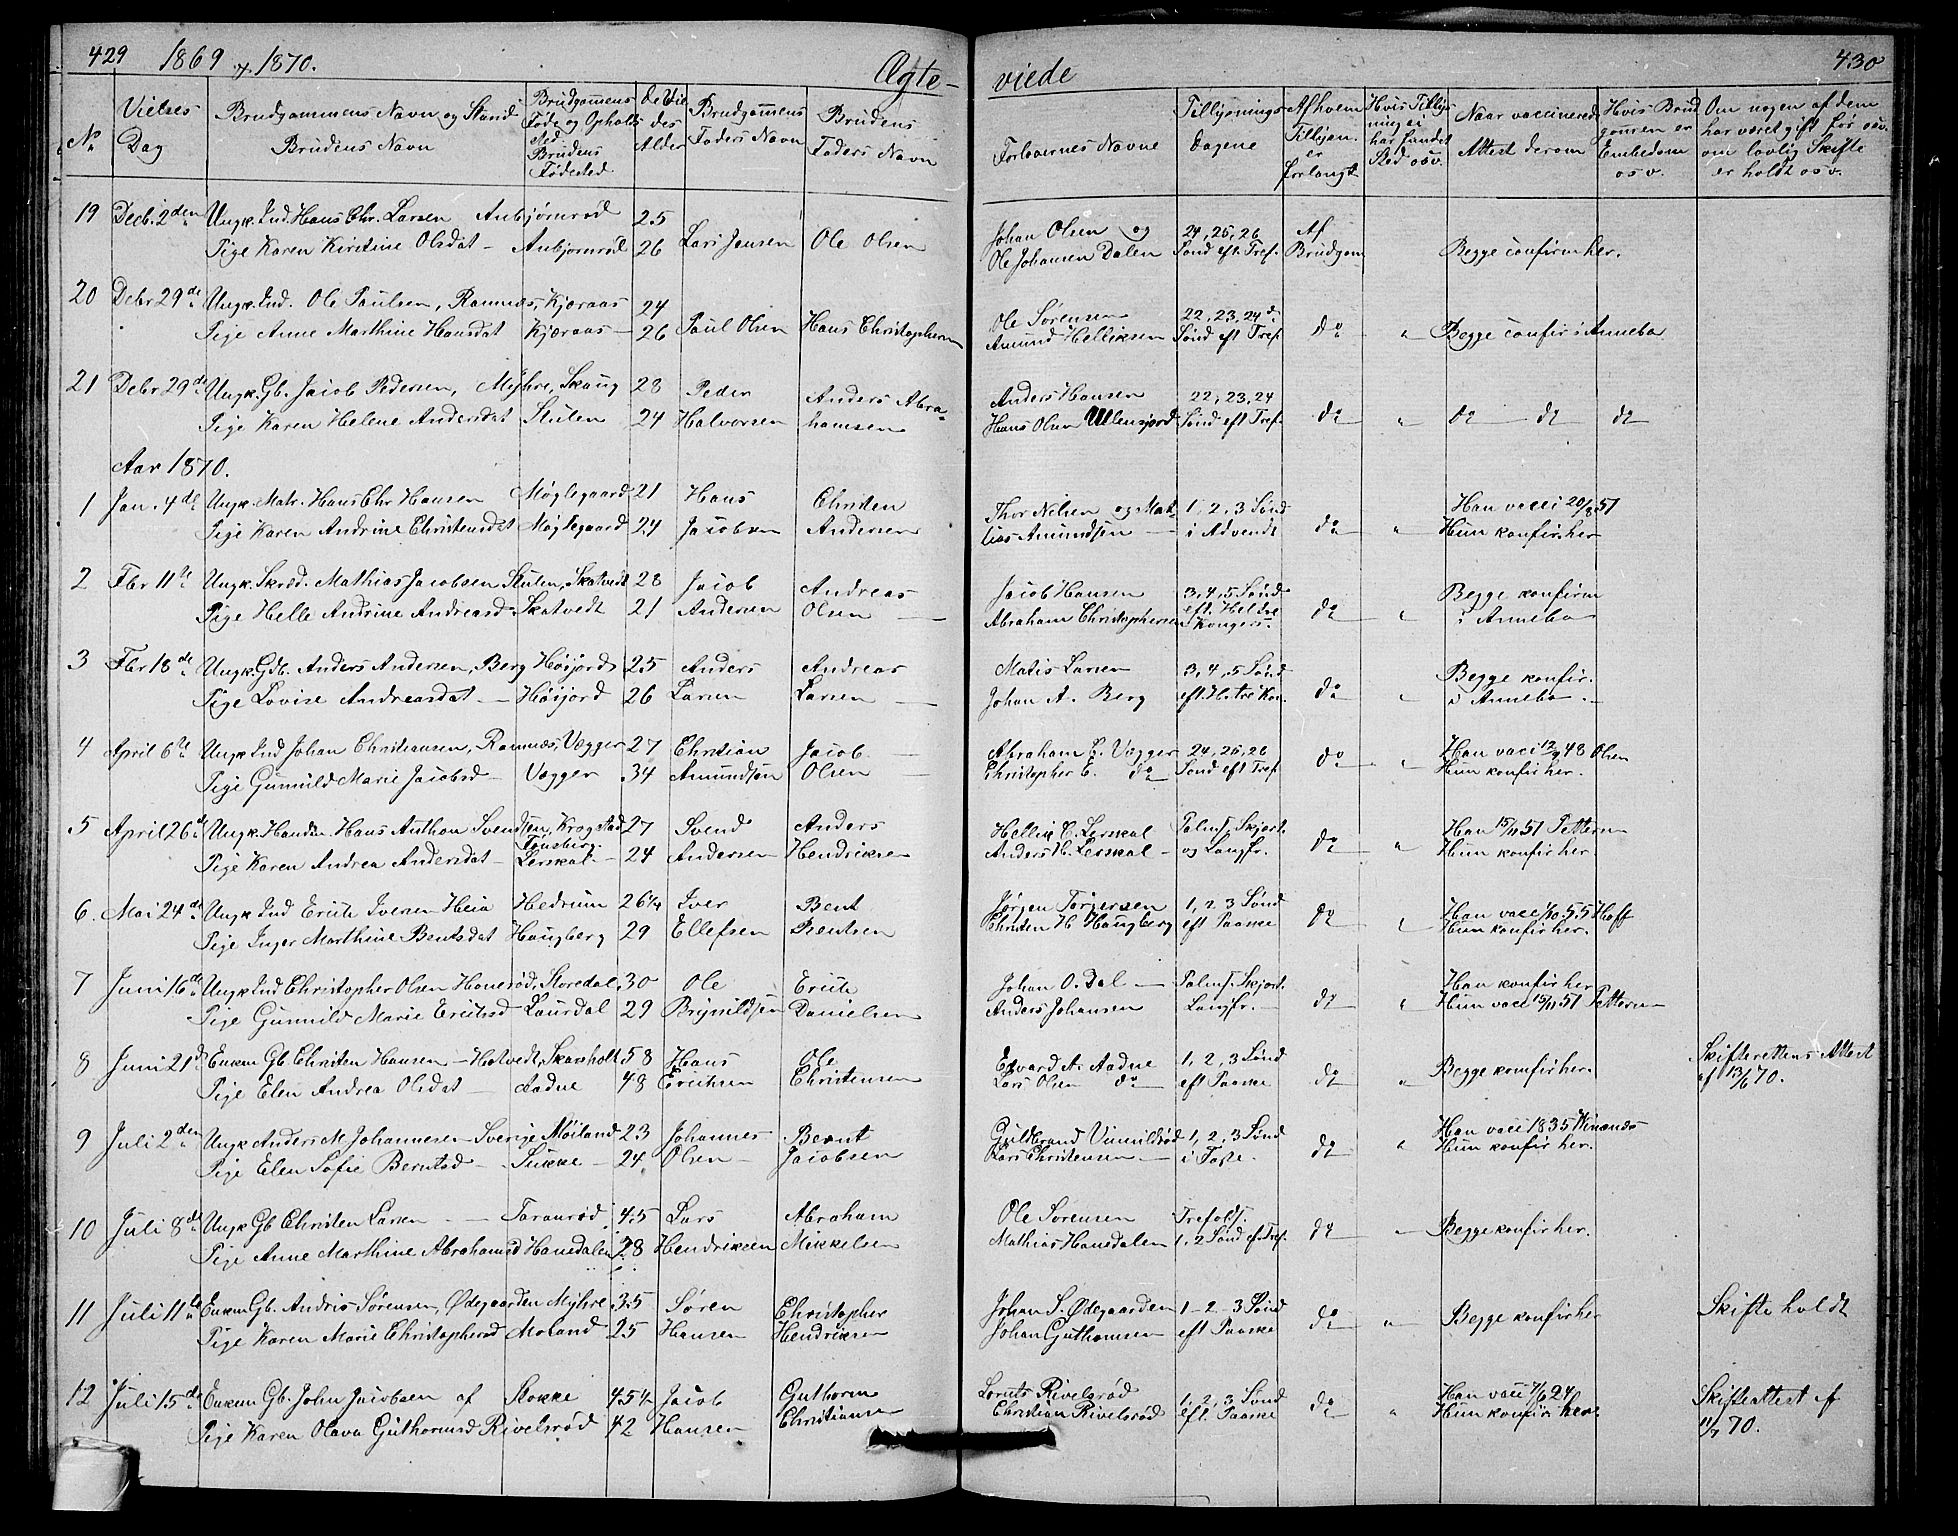 429 1869 og 1870. Ægte-
No
Vielses Dag
Brudgommens Navn og Stand
Brudens Navn
Brudgommens Føde og Opholds Sted Brudens Fødested
de Vie des Alder
Brudgommens Faders Navn
Brudens Faders Navn
19 Decb. 2den Ungk. Ind. Hans Chr. Larsen Anbjørnrød 25
Pige Karen Kirstine Olsdat - Anbjørnrød 26 Lars Jensen Ole Olsen
20 Debr 29de Ungk. Ind. Ole Paulsen, Ramnæs, Kjæraas 24
Pige Anne Marthine Hansdat Kjæraas - 26 Paul Olsen Hans Christophersen
21 Debr 29de Ungk. Gb. Jacob Pedersen, Myhre, Skaug 28 Peder Anders Abra-
Pige Karen Helene Andersdat Stulen 24 Halvorsen hamsen
Aar 1870.
1 Jan. 4de Ungk. Matr. Hans Chr Hansen Møglegaard 21 Hans Christen
Pige Karen Andrine Christensdat Møglegaard 24 Jacobsen Andersen
2 Fbr 11te Ungk. Skræd. Mathias Jacobsen Stulen, Skatvedt 28 Jacob Andreas
Pige Helle Andrine Andreasd. Skatvedt 21 Andersen Olsen
3 Fbr 18de Ungk. Gdb. Anders Andersen, Berg Høsjord 25 Anders Andreas
Pige Lovise Andreasdat - Høsjord 26 Larsen Larsen
4 April 6te Ungk Ind Johan Christiansen, Ramnæs, Vægger 27 Christian Jacob
Pige Gunnild Marie Jacobsd - Vægger 34 Amundsen Olsen
5 April 26de Ungk. Handm. Hans Anthon Svendsen, Krogstad 27 Svend Anders
Tønsberg.
Pige Karen Andrea Andersdat - Lerskal - 24 Andersen Hendriksen
6. Mai 24de Ungk Ind Erich Iversen Heia Hedrum 26¼ Iver Bent
Pige Inger Marthine Bentsdat Haugberg 29 Ellefsen Bentsen
7 Juni 16de Ungk Ind Christopher Olsen Hanesrød, Storedal 30 Ole Erich
Pige Gunnild Marie Erichsd Laurdal 29 Brynildsen Danielsen
8 Juni 21de Enkem Gb Christen Hansen - Hotvedt, Skarsholt 58 Hans Ole
Pige Elen Andrea Olsdat - Aadne 48 Erichsen Christensen
9 Juli 2den Ungk Anders M Johannesen Sverige Møiland 23 Johannes Bernt
Pige Elen Sofie Berntsd - Sukke - 24 Olsen - Jacobsen
10 Juli 8de Ungk Gb Christen Larsen - Taranrød 45 Lars Abraham
Pige Anne Marthine Abrahamsd Hanedalen 28 Hendriksen Mikkelsen
11 Juli 11te Enkem Gb. Andris Sørensen, Ødegaarden Myhre 35 Søren Christopher
Pige Karen Marie Christophersd Moland 25 Hansen Hendriksen
12 Juli 15de Enkem Gb. John Jacobsen af Stokke 45¼ Jacob Guthorm
Pige Karen Olava Guthormsd Rivelsrød 42 Hansen Christiansen
viede 430
Forlovernes Navne
Tillysnings Dagene
Af hvem Tillysn. er forlangt
Hvis Tillysning ei har fundet Sted osv.
Naar vaccinered Attest derom
Hvis Brudgomen er Embedsm osv.
Om nogen af dem har været gift før osv. om lovlig Skifte er holdt osv.
Johan Olsen og 24, 25, 26 Af
Ole Johansen Dalen Sønd eft. Tref. Brudgom Begge confirm her.
Ole Sørensen 22, 23, 24 d.
Amund Helliksen Sønd eft Tref. do " Begge confir i Annebo
Anders Hansen 22, 23, 24
Hans Olsen Ullensjord Sønd eft Tref. do " do do do
Thor Nilsen og Mat- 1, 2, 3 Sønd Han vacci 20/8 51
hias Amundsen - i Advendt do " Hun konfir. her
Jacob Hansen 3, 4, 5 Sønd Begge konfirm
Abraham Christophersen eft. Hel. tre Konger. do " i Annebo
Matis Larsen 3, 4, 5 Sønd Begge konfir.
Johan A. Berg eft. H. tre Kon. do " i Annebo -
Abraham C. Vægger 24, 25, 26 Han vacci 12/9 48 Olsen
Christopher E. do Sønd eft Tref do " Hun konfir her.
Hellik C. Lerskal Palms. Skjært. Han 15/11 51 Pettersen
Anders H. Lerskal - og Langfr. do " Hun konfir her.
Jørgen Torgersen 1, 2, 3 Sønd Han vacci 1/10 55 Hoff
Christen H Haugberg eft Paaske do " Hun konfir her.
Johan O. Dal - Palms. Skjært. Han konfir her
Anders Johansen Langfr. - do " Hun vacci 15/11 51 Pettersen
Edvard A. Aadne 1, 2, 3 Sønd Skifterettens Attest
Lars Olsen do - eft Paaske do " Begge konfir her. af 13/6 70.
Guldbrand Vimilsrød 1, 2, 3 Sønd Han vacci 1835
Lars Christensen - i Faste. do " Hun konfir her.
Ole Sørensen Trefolds.
Mathias Hanedalen 1, 2 Sønd ef Tref. do " Begge konfir her.
Johan S. Ødegaarden 1 - 2 - 3 Sønd Skifte holdt
Johan Guthormsen eft Paaske do " Begge konfir her
Lornts Rivelsrød 1, 2, 3 Sønd Han vacci 7/6 24 Skifteattest af
Christian Rivelsrød eft. Paaske do " Hun konfir her. 11/7 70.